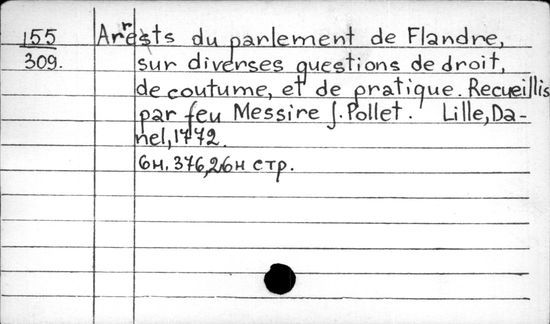 155 Arrests du parlement de Flandre,
309. sur diverses questions de droit,
de coutume, et de pratique. Recueillis
par feu Messire J. Pollet. Lille, Da-
nel, 1772.
6н. 376, 26н стр.